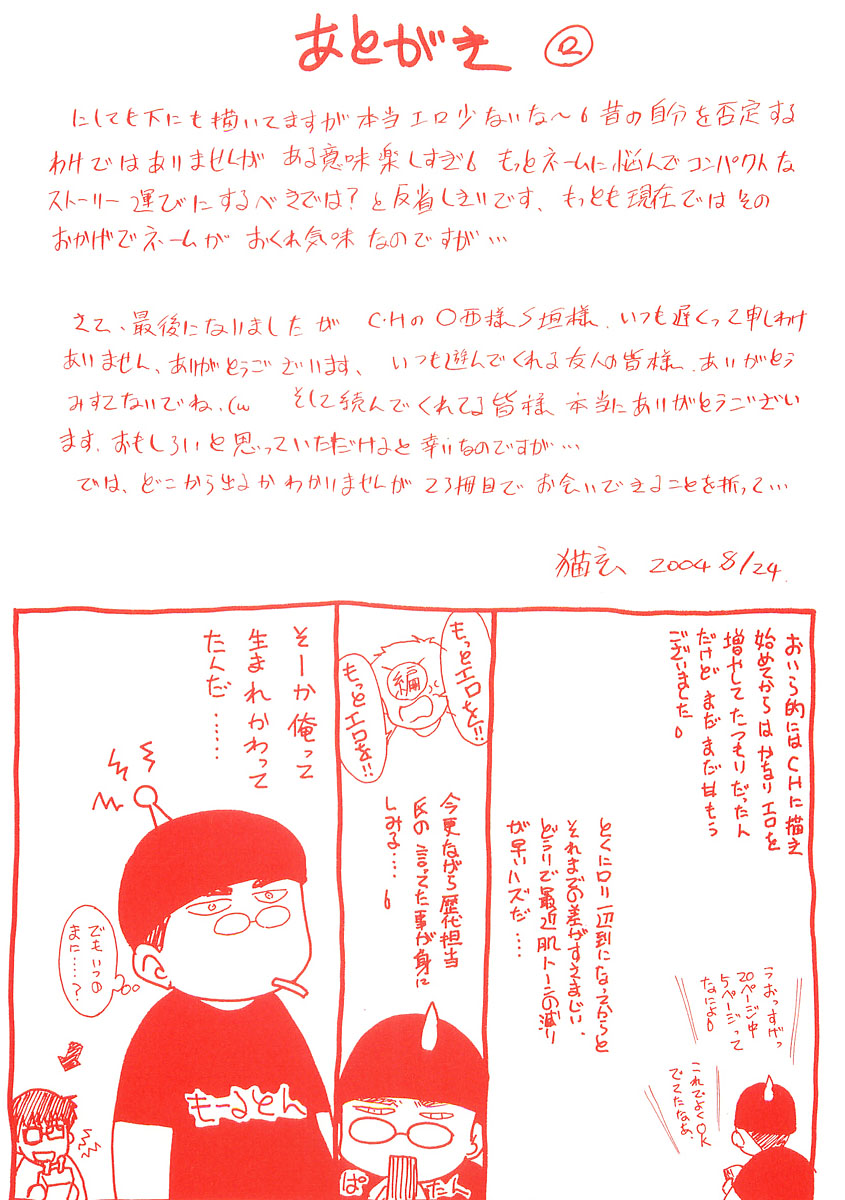 あとがき ②
にしても下にも描いてますが本当エロ少ないな～6 昔の自分を否定する
わけではありませんが ある意味楽しすぎ6 もっとネームに悩んでコンパクトな
ストーリー運びにするべきでは？と反省しきりです、もっとも現在ではその
おかげでネームが おくれ気味なのですが…
さて、最後になりましたが C・Hの〇西様S垣様、いつも遅くって申しわけ
ありません、ありがとうございます、いつも遊んでくれる友人の皆様、ありがとう
みすてないでね、(w そして読んでくれてる皆様 本当にありがとうござい
ます、おもしろいと思っていただけると幸いなのですが…
では、どこから出るかわかりませんが 23冊目で お会いできることを祈って…
猫玄 2004 8/24
おいら的にはCHに描き
始めてからはかなりエロを
増やしてたつもりだったん
だけど まだまだ甘もう
ございました6
うおっすげっ
20ページ中
5ページって
なによ6
これでよくOK
でてたなあ、
とくにロリ一辺到になってからと
それまでの差がすさまじい、
どうりで最近肌トーンの減り
が早いハズだ……
もっとエロを!!
編
もっとエロを!!
今更ながら歴代担当
氏の言ってた事が身に
しみる……6
ぱたん
そーか俺って
生まれかわって
たんだ……
でもいつの
まに……？
もーるとん